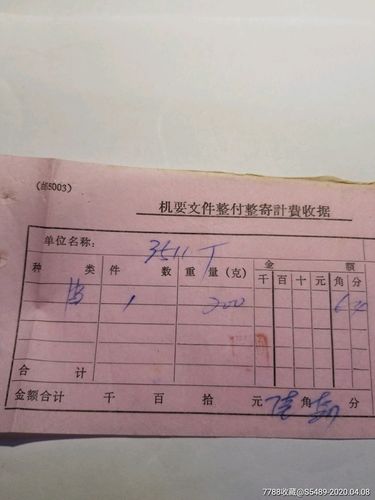 (邮5003)
机要文件整付整寄計費收据
单位名称: 3511厂
种类 件数 重量(克) 金额
千 百 十 元 角 分
1 200 6
合计
金额合计 千 百 拾 元 角 分
7788收藏@S5489-2020.04.08